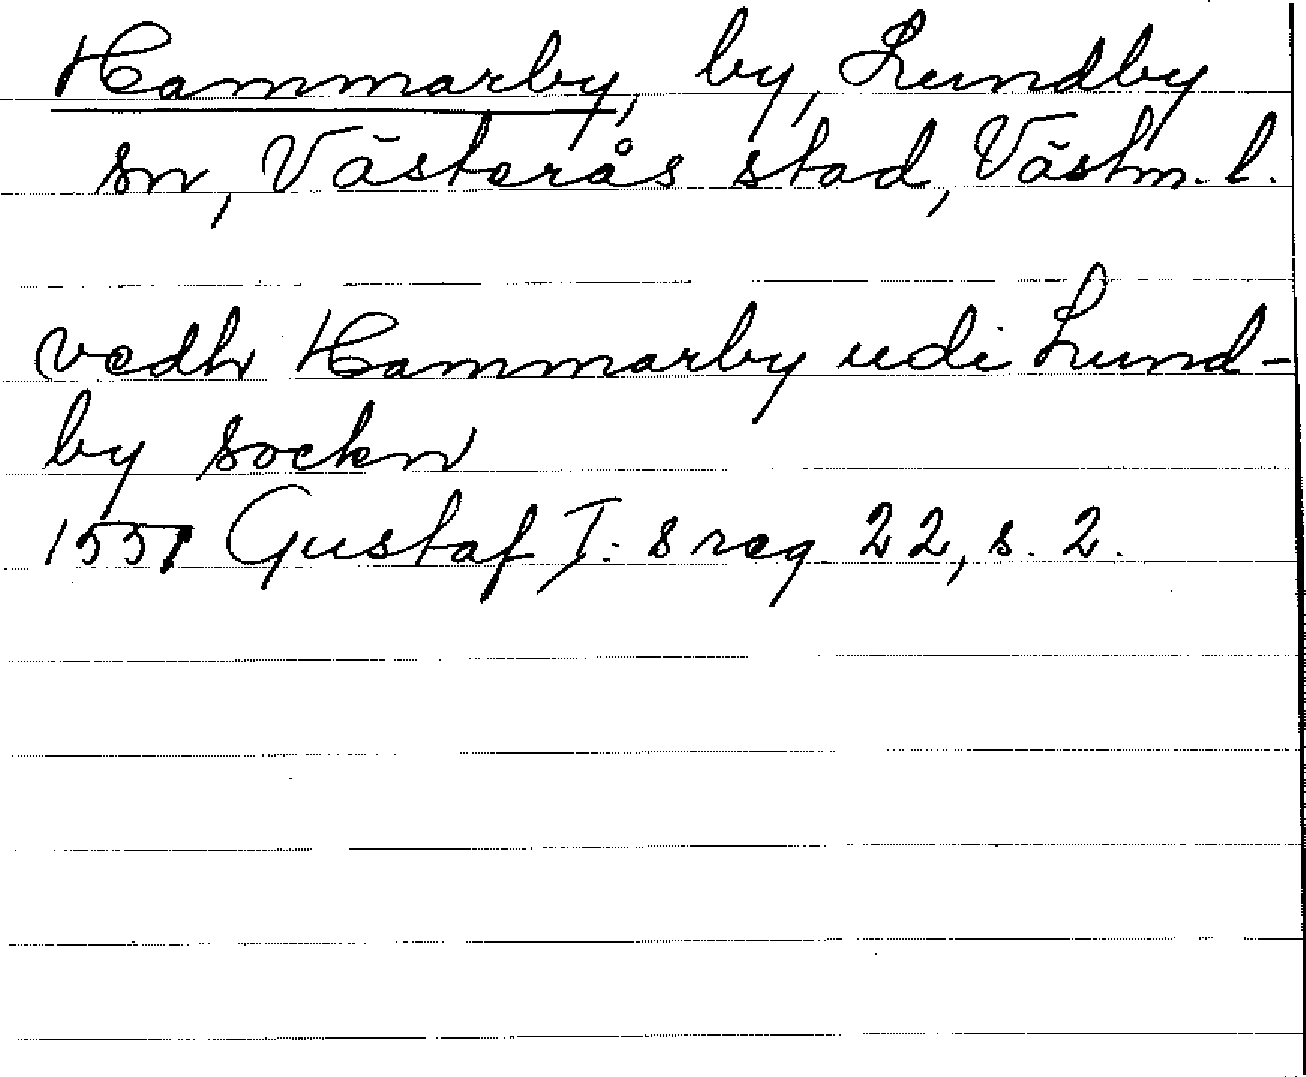 Hammarby, by, Lundby
sn, Västerås stad, Västm. l.
vedh Hammarby udi Lund-
by sockn
1551 Gustaf I:s reg. 22, s. 2.